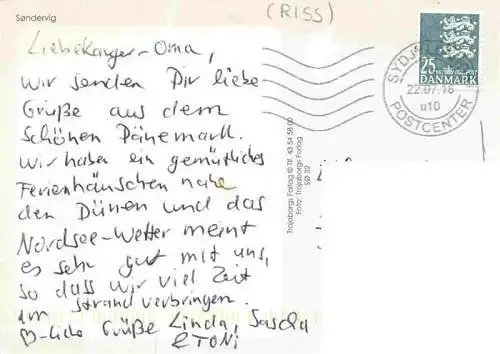 Søndervig
(RISS)
Liebe Kanger-Oma,
wir senden Dir liebe
Grüße aus dem
schönen Dänemark.
Wir haben ein gemütliches
Ferienhäuschen nahe
den Dünen und das
Nordsee-Wetter meint
es sehr gut mit uns,
so dass wir viel Zeit
am Strand verbringen.
♡-liche Grüße Linda, Sascha
& TONI
25
DANMARK
22.07.18
u10
POSTCENTER
Trojaborgs Forlag © Tlf. 43 54 58 00
Foto: Trojaborgs Forlag